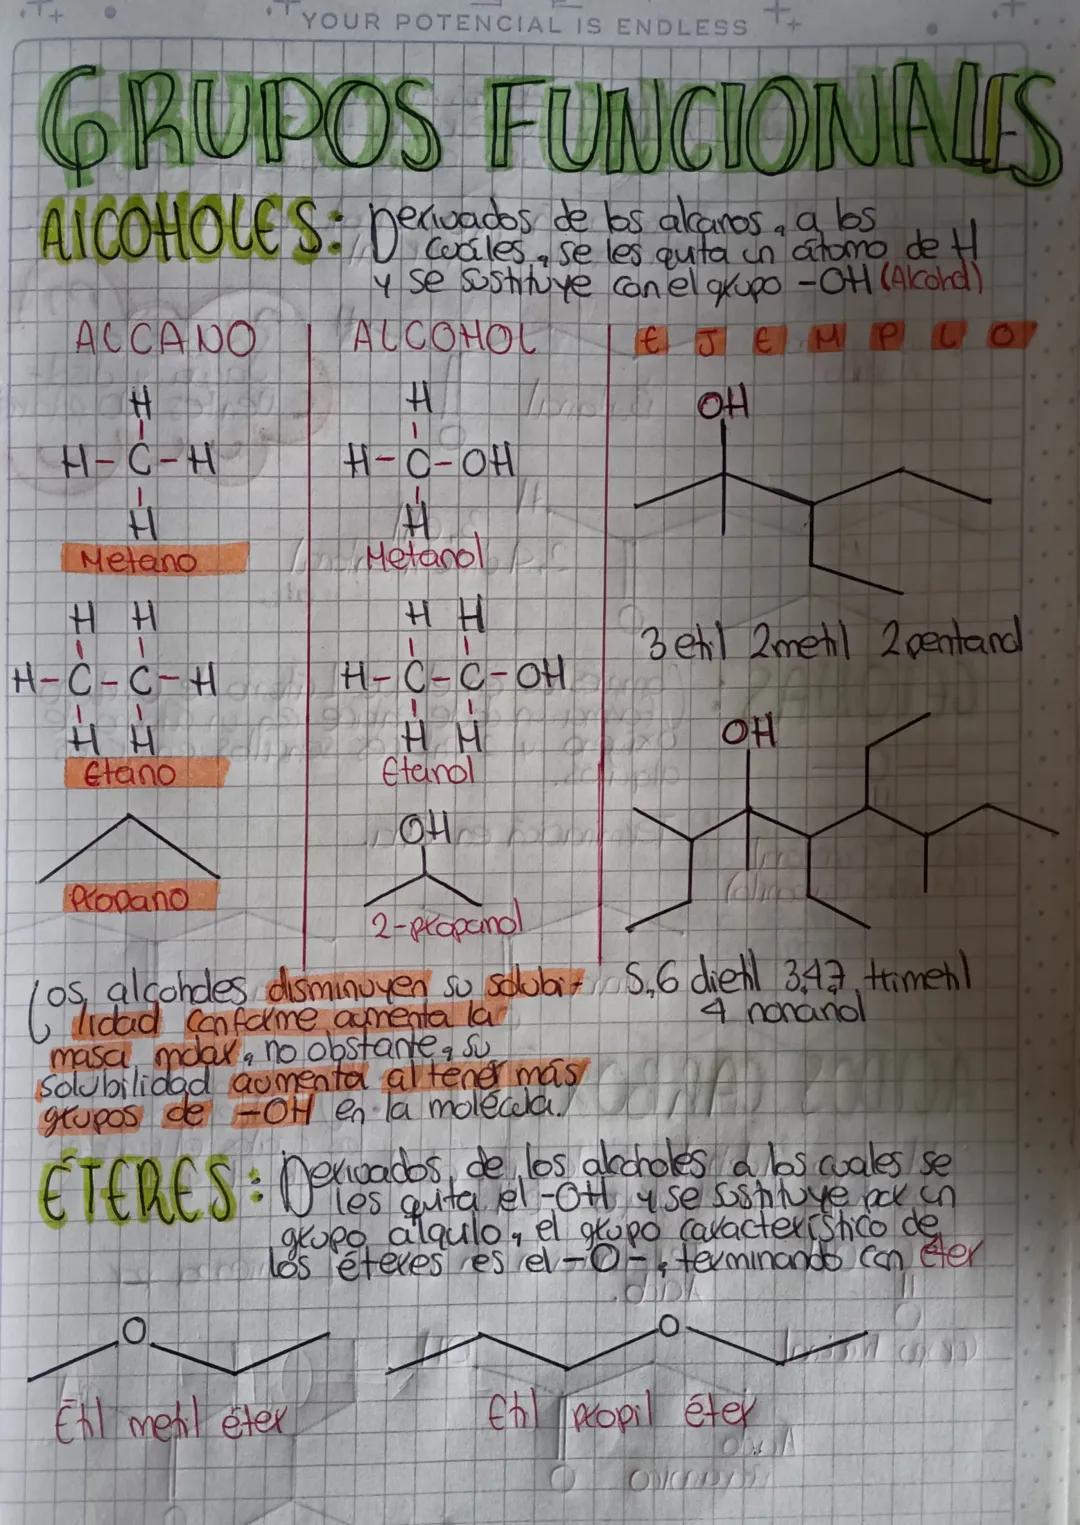 YOUR POTENCIAL IS ENDLESS
GRUPOS FUNCIONALES
ALCOHOLES: Derivados de los alcanos, a los
cuáles, se les quita un átomo de H
y se sustituye con el grupo -OH (Alcohol)
ALCANO
H
H-C-H
H
Metano
H H
H-C-C-H
H H
Etano
Propano
ALCOHOL
H
H-C-OH
H
Metanol
H H
H-C-C-OH
H H
Etanol
OH
2-propanol
EJEMPLO
OH
3 etil 2 metil 2 pentanol
OH
5,6 dietil 3,4,7 trimetil
4 nonanol
Los alcoholes disminuyen su solubi-
lidad conforme aumenta la
masa molar, no obstante, su
solubilidad aumenta al tener más
grupos de -OH en la molécula.
ÉTERES: Derivados de los alcoholes a los cuales se
les quita el -OH y se sustituye por un
grupo álquilo, el grupo característico de
los éteres es el -O-, terminando con éter
O
Etil metil éter
O
Etil propil éter